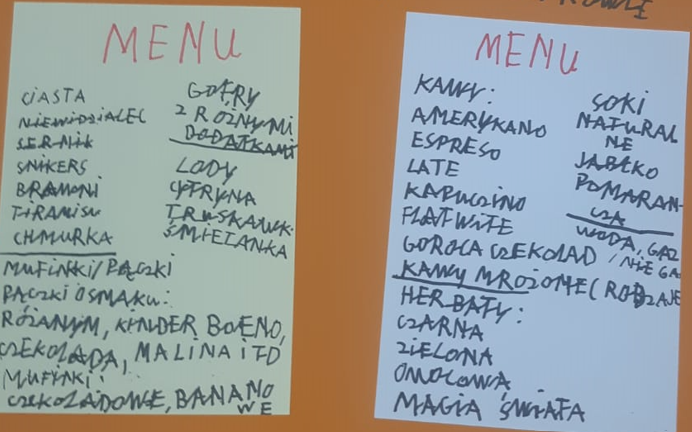 MENU
CIASTA
NIEWIDZIALEC
SERNIK
SNIKERS
BRAMONI
TIRAMISU
CHMURKA
GOFRY
Z RÓŻNYMI
DODATKAMI
LODY
CYTRYNA
TRUSKAWK
ŚMIETANKA
MUFINKI/PĄCZKI
PĄCZKI O SMAKU:
RÓŻANYM, KINDER BOENO,
CZEKOLADA, MALINA I TD
MUFINKI:
CZEKOLADOWE, BANANO
WE
MENU
KAWY:
AMERYKANO
ESPRESO
LATE
KAPUCZINO
FLATWITE
GOROCA CZEKOLAD
KAWY MROŻONE (RODZAJE
HERBATY:
CZARNA
ZIELONA
OWOCOWA
MAGIA ŚWIATA
SOKI
NATURAL
NE
JABŁKO
POMARAN-
CZA
WODA, GAZ
/NIE GA